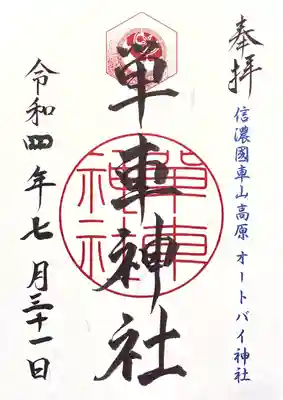 奉拝
信濃國車山高原 オートバイ神社
単車神社
単車
神社
令和四年七月三十一日